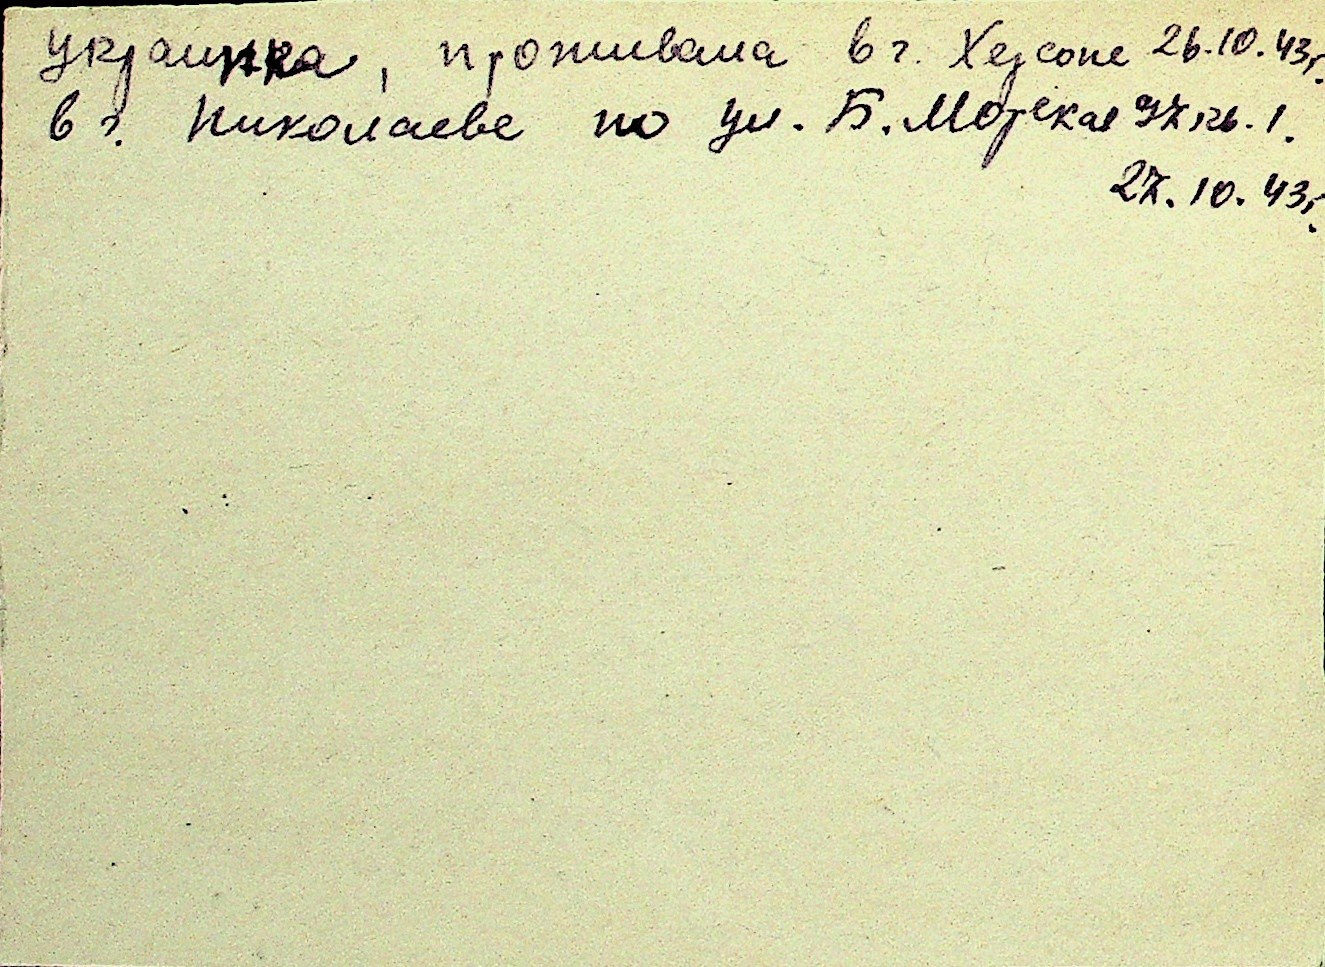 украинка, проживала в г. Херсоне 26.10.43г.
в г. Николаеве по ул. Б. Морская 97 кв. 1.
27.10.43г.